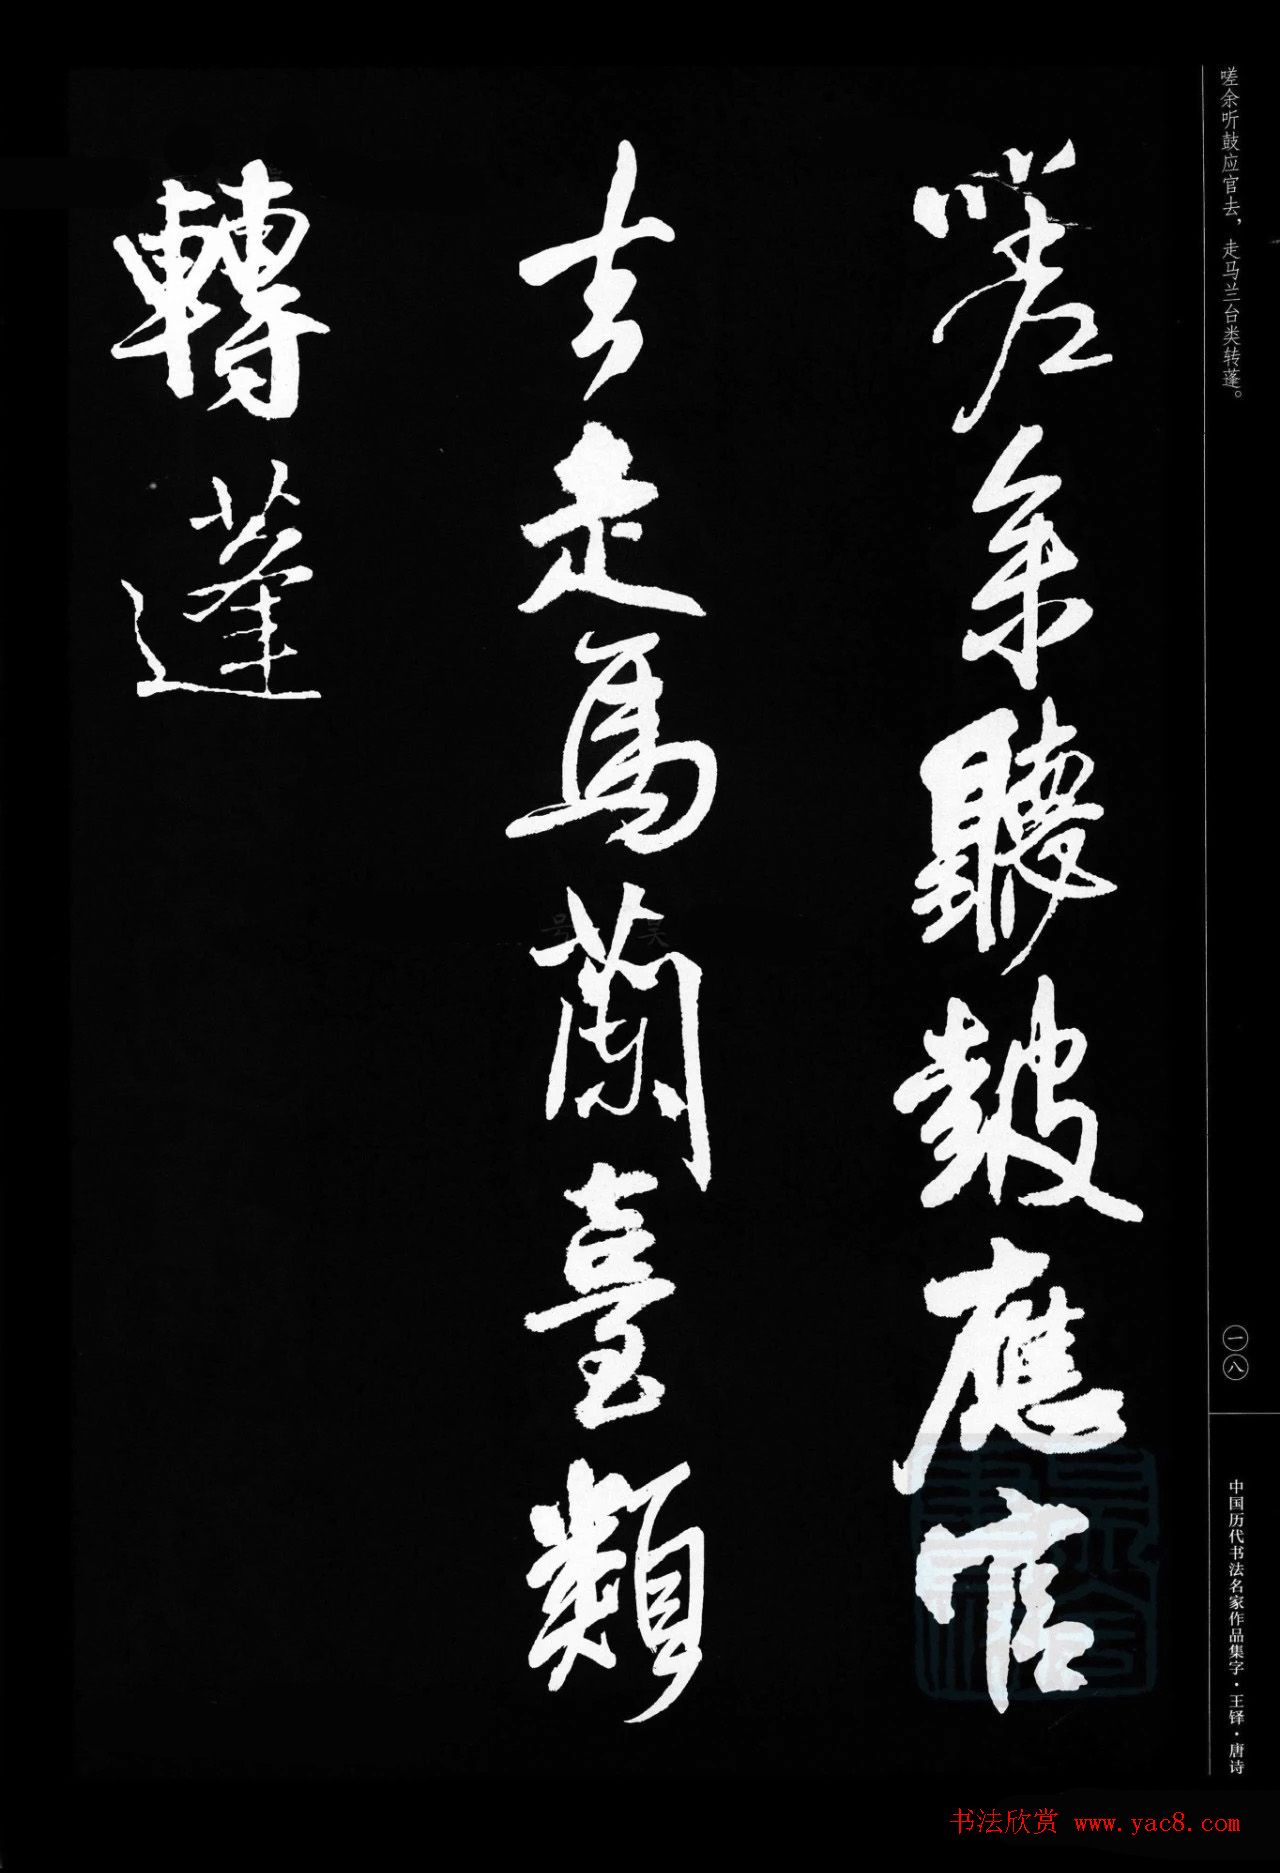 嗟余聽鼓應官
去走馬蘭臺類
轉蓬
嗟余听鼓应官去，走马兰台类转蓬。
一八
中国历代书法名家作品集字·王铎·唐诗
书法欣赏 www.yac8.com